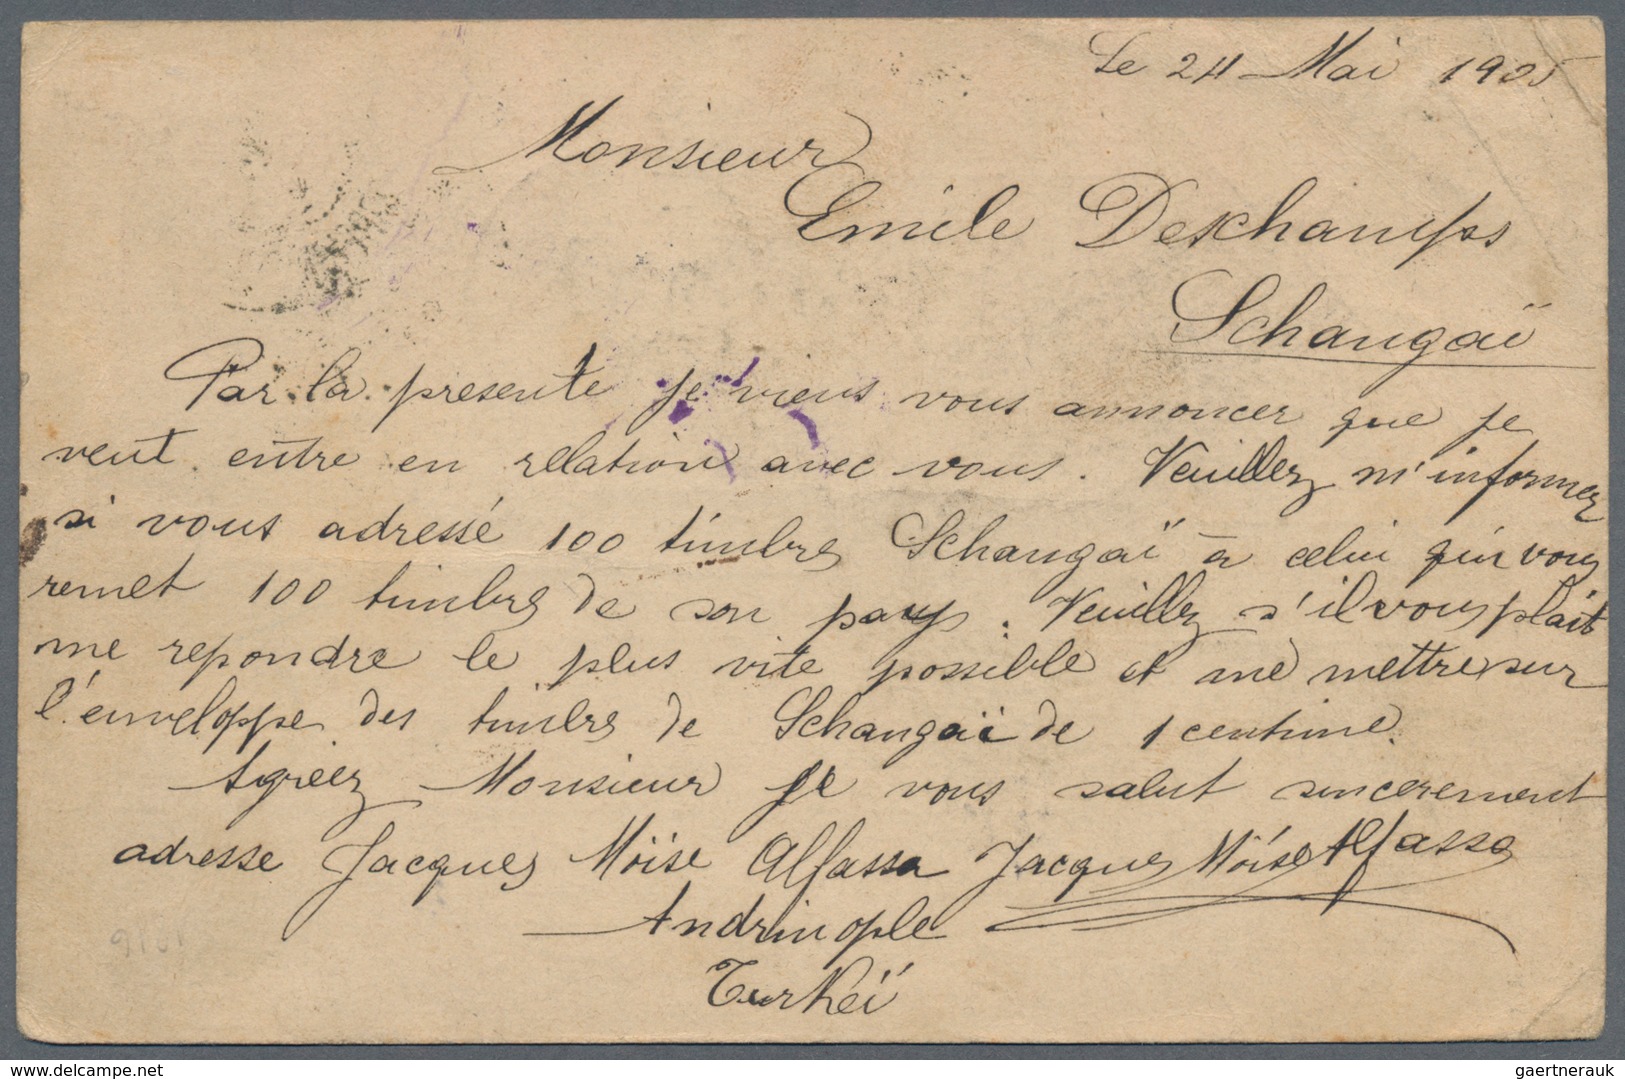 Le 24 Mai 1905
Monsieur
Emile Deschamps
Schangaï
Par la presente je viens vous annoncer que je
veut entre en relation avec vous. Veuillez m'informez
si vous adressé 100 timbres Schangaï à celui qui vous
remet 100 timbres de son pays. Veuillez s'il vous plait
me repondre le plus vite possible et me mettre sur
l'enveloppe des timbres de Schangaï de 1 centime.
Agreez Monsieur je vous salut sincerement
adresse Jacques Moïse Alfassa Jacques Moïse Alfassa
Andrinople
Turkeï
www.delcampe.net
gaertnerauk